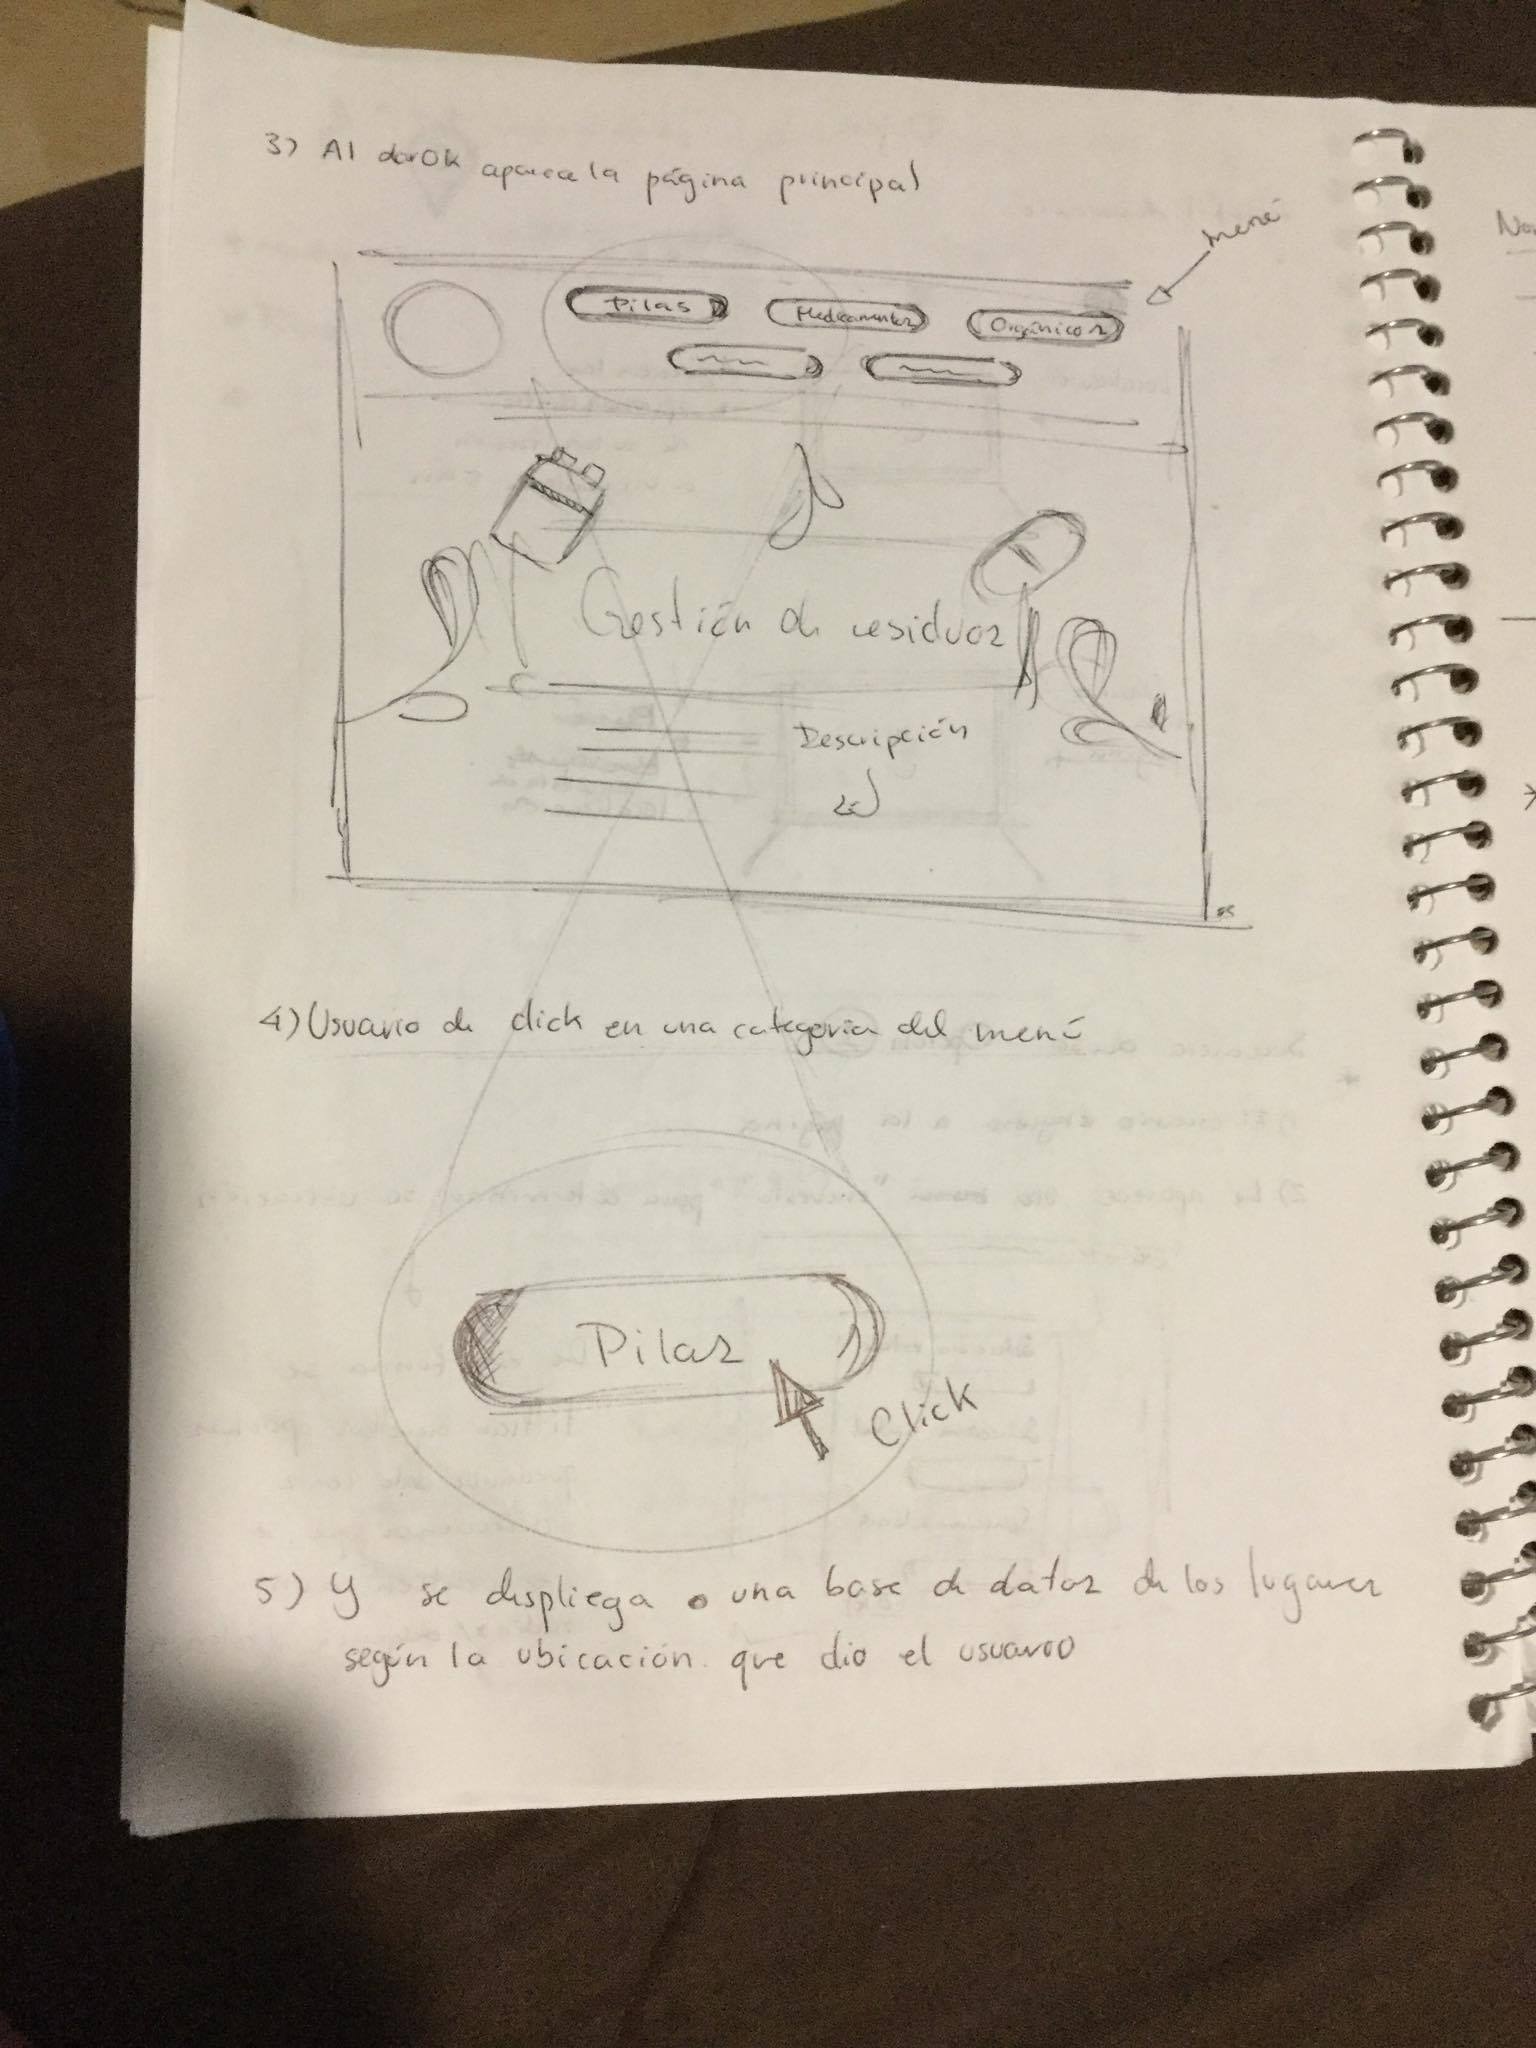 3) Al dar OK aparece la página principal
menú
Pilas
Medicamentos
Orgánicos
Gestión de residuos
Descripción
4) Usuario da click en una categoria del menú
Pilas
Click
5) Y se despliega una base de datos de los lugares
según la ubicación que dio el usuario